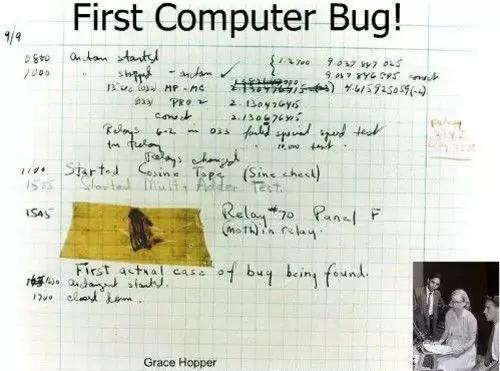 First Computer Bug!
9/9
0800 started { 1.2700 9.037 847 025
1000 " stopped - ✓ 9.037 846 995 correct
13"uc (033) MP - MC 4.615925059(-2)
(033) PRO 2 2.130476415
correct 2.130676415
Relays 6-2 in 033 failed special speed test
in relay " 10.000 test .
Relays changed
1100 Started Cosine Tape (Sine check)
1525 Started Multi Adder Test.
1545 Relay #70 Panel F
(moth) in relay.
First actual case of bug being found.
started.
1700 closed down.
Grace Hopper